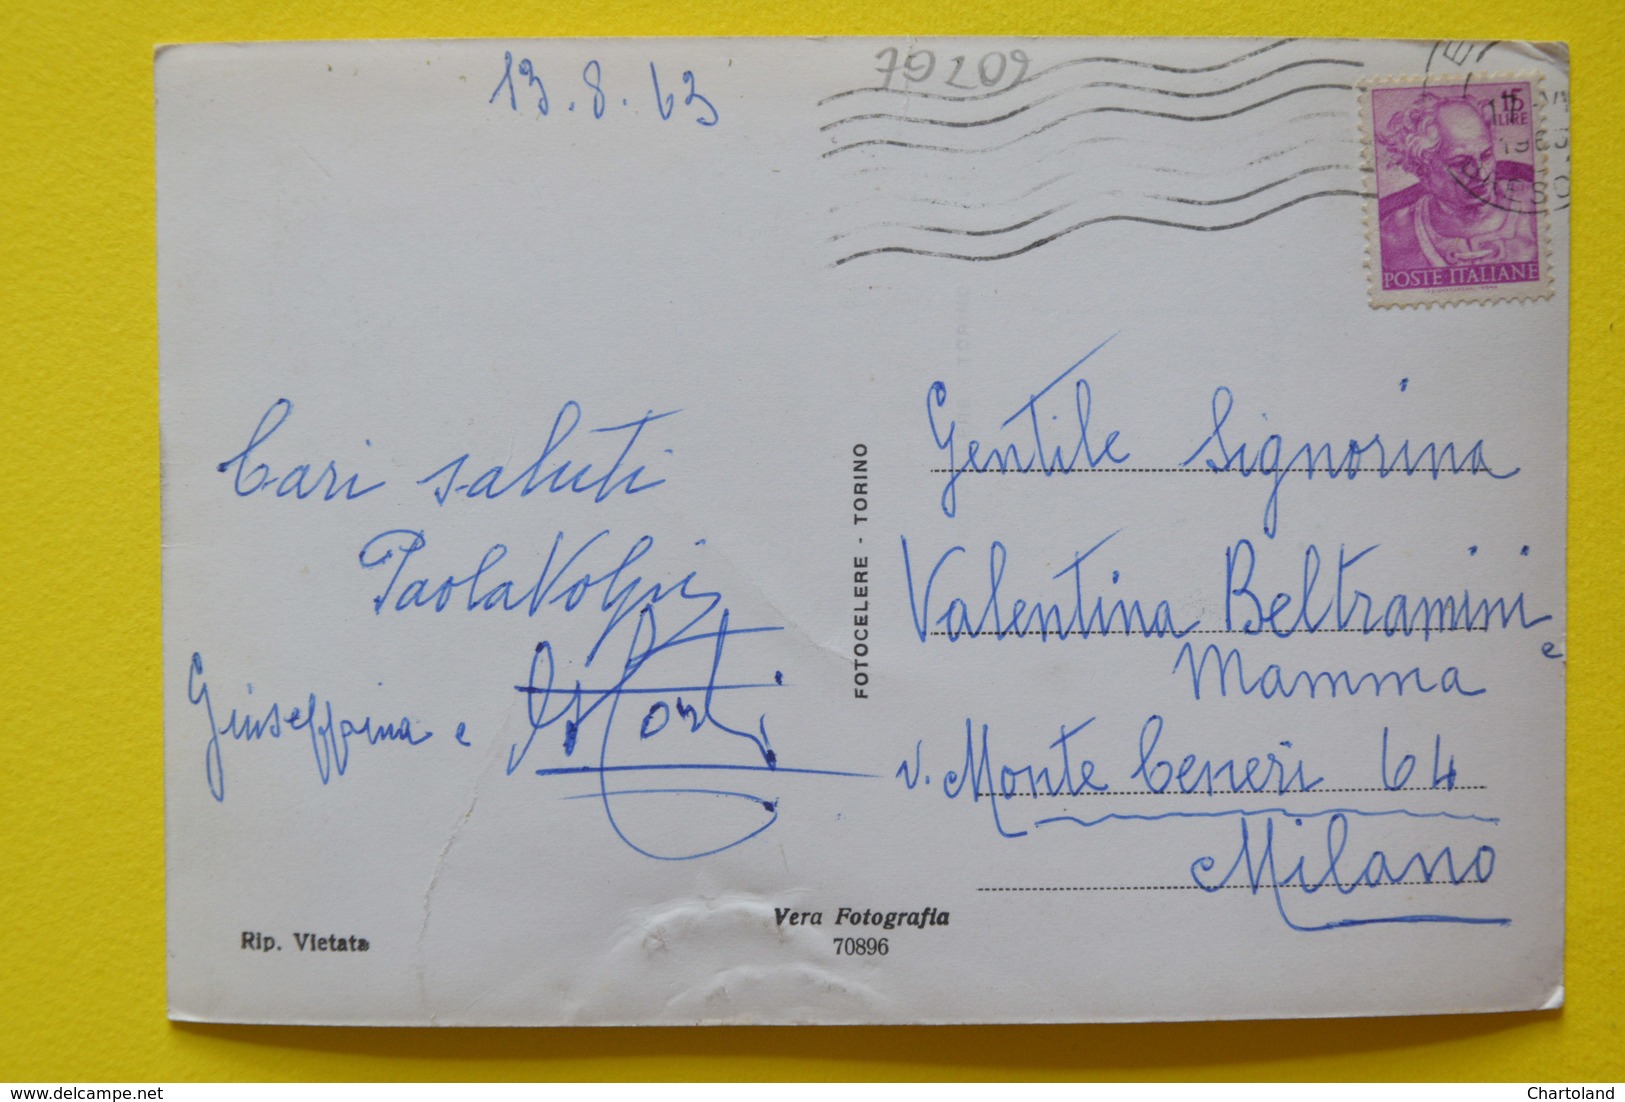 13.8.63
79209
15
LIRE
POSTE ITALIANE
Cari saluti
Paola Volpi
Giuseppina e
FOTOCELERE - TORINO
Gentile Signorina
Valentina Beltramini
e
Mamma
v. Monte Ceneri 64
Milano
Rip. Vietata
Vera Fotografia
70896
delcampe.net
Chartoland